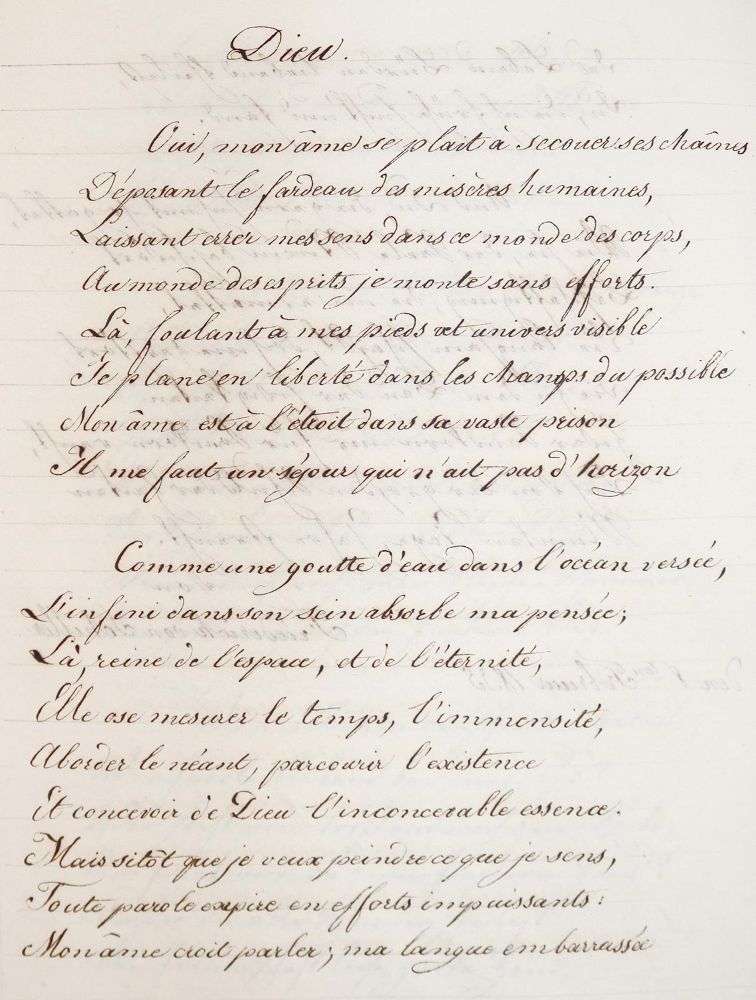 Dieu.
Oui, mon âme se plait à secouer ses chaînes
Déposant le fardeau des misères humaines,
Laissant errer mes sens dans ce monde des corps,
Au monde des esprits je monte sans efforts.
Là, foulant à mes pieds cet univers visible
Je plane en liberté dans les champs du possible
Mon âme est à l'étroit dans sa vaste prison
Il me faut un séjour qui n'ait pas d'horizon
Comme une goutte d'eau dans l'océan versée,
L'infini dans son sein absorbe ma pensée;
Là, reine de l'espace, et de l'éternité,
Elle ose mesurer le temps, l'immensité,
Aborder le néant, parcourir l'existence
Et concevoir de Dieu l'inconcevable essence.
Mais sitôt que je veux peindre ce que je sens,
Toute parole expire en efforts impuissants:
Mon âme croit parler; ma langue embarrassée